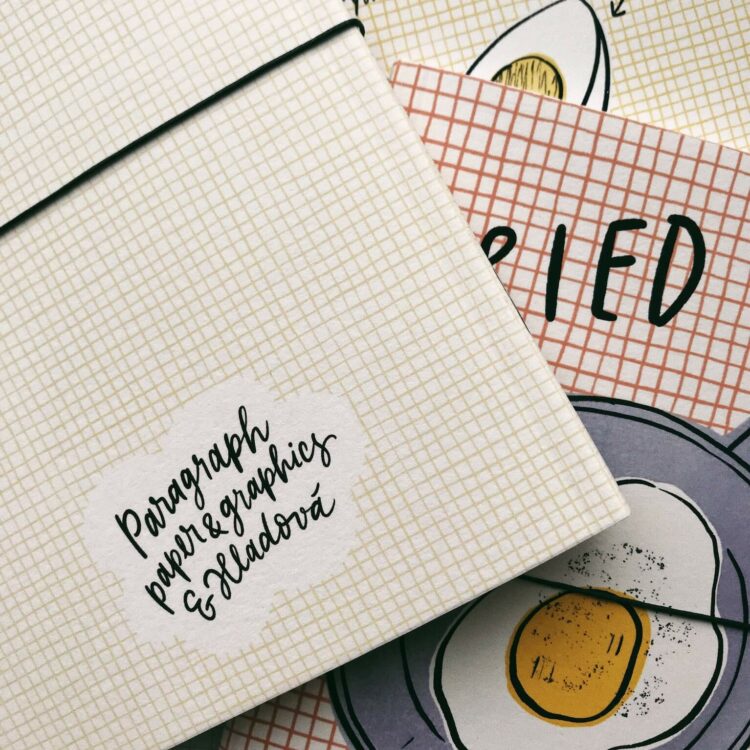 IED
Paragraph
paper & graphics
& Hladová